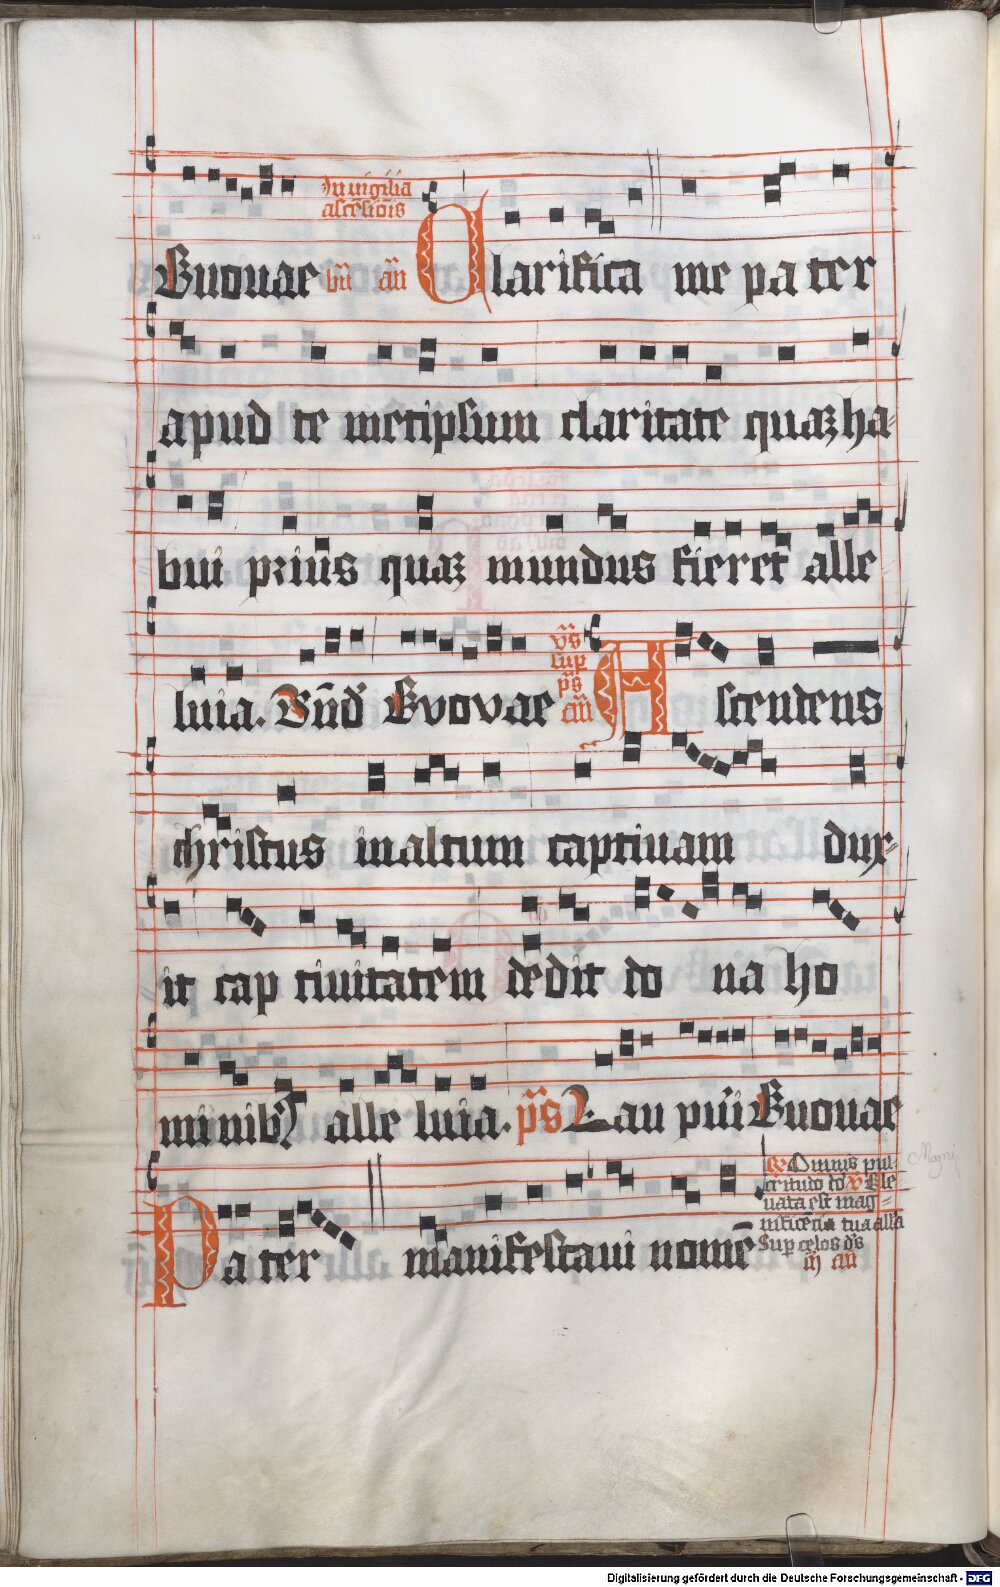 Euouae
In vigilia
ascēsiōis
bn̄ an̄ Clarifica me pa ter
apud te metipsum claritate quaꝫ ha-
bui prius quaꝫ mundus fieret alle
luia. Bn̄d Evovae
vs
sup
ps
an̄
Ascendens
christus in altum captivam dux-
it cap tiuitatem dedit do na ho
minibꝰ alle luia. ps Lau pu̅i Euouae
Pa ter manifestaui nomē
Omnis pul-
critudo do ꝟ Ele-
uata est mag-
nificēcia tua alla
Sup celos ds
an̄
Digitalisierung gefördert durch die Deutsche Forschungsgemeinschaft - DFG